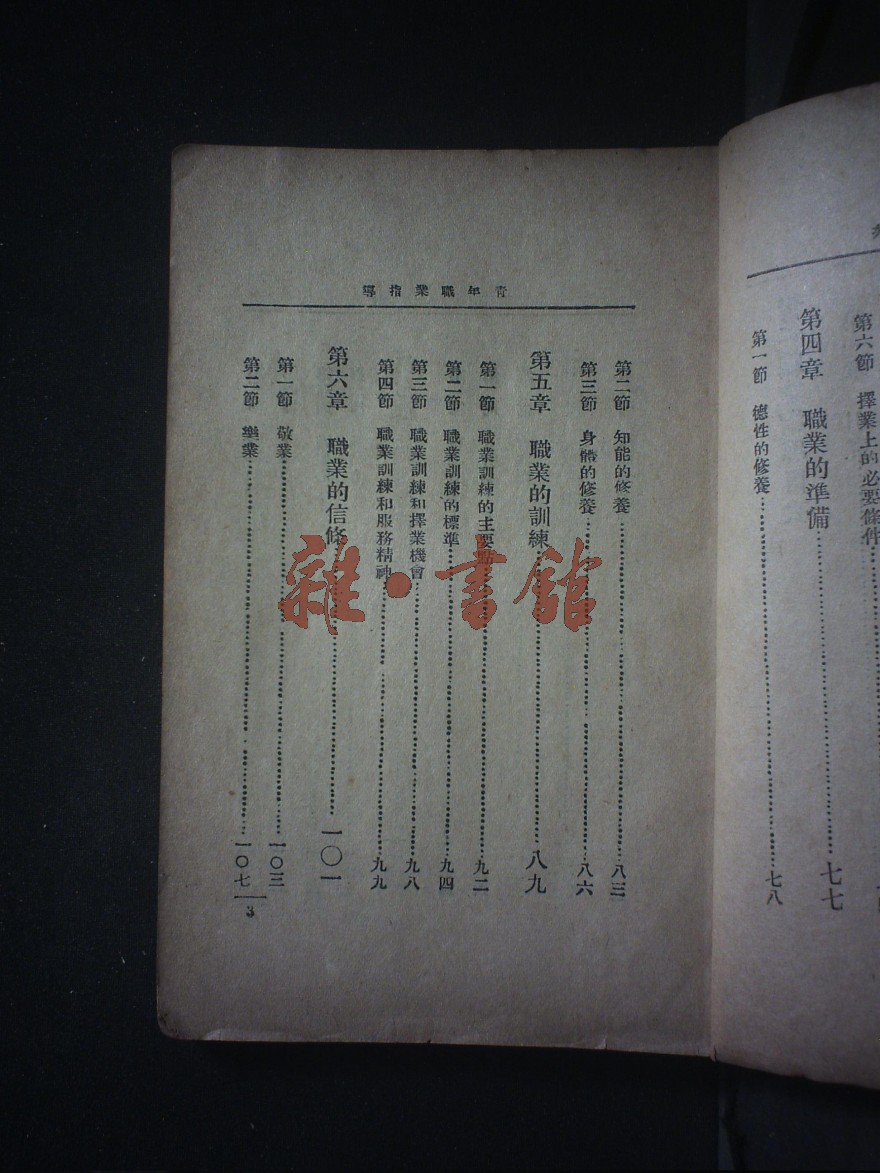 第六節 擇業上的必要條件
第四章 職業的準備……七七
第一節 德性的修養……七八
青年職業指導
第二節 知能的修養……八三
第三節 身體的修養……八六
第五章 職業的訓練……八九
第一節 職業訓練的主要點……九二
第二節 職業訓練的標準……九四
第三節 職業訓練和擇業機會……九八
第四節 職業訓練和服務精神……九九
第六章 職業的信條……一〇一
第一節 敬業……一〇三
第二節 樂業……一〇七
3
雜·書館